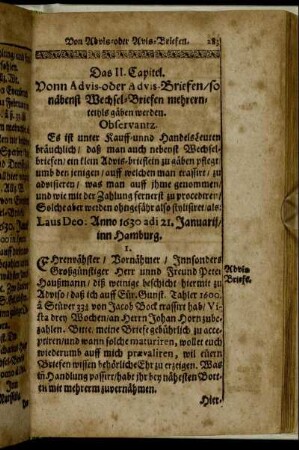 Von Advis-oder Avis-Briefen. 283
Das II. Capitel.
Vonn Advis-oder Advis-Briefen/so
näbenst Wechsel-Briefen mehrern-
theils gäben werden.
Observantz.
Es ist unter Kauff-unnd Handelsleuten
bräuchlich/ daß man auch nebenst Wechsel-
briefen/ein klein Advis-briefflein zu gäben pflegt/
umb den jenigen/ auff welchen man trassirt/ zu
advisieren/ was man auff jhme genommen/
und wie mit der Zahlung fernerst zu procediren/
Solche aber werden ohngefähr also stylisirt/als:
Laus Deo: Anno 1630 adi 21. Januarii/
inn Hamburg.
1.
EHrenvästter/ Vornähmer/ Innsonders
Großgünstiger Herr unnd Freund Peter
Haußmann/ diß wenige beschicht hiermit zu
Adviso/daß ich auff Eür. Gunst. Tahler 1600.
à Stüver 33½ von Jacob Bock trassirt hab/ Vi-
sta drey Wochen/an Herrn Johan Horn zube-
zahlen. Bitte, meine Briefe gebührlich zu acce-
ptiren/und wann solche maturiren, wollet euch
wiederumb auff mich prævaliren, wil eüern
Briefen wissen behörliche Ehr zu erzeigen. Was
in Handlung passirt/habt jhr bey nähesten Bott-
en mit mehrerm zuvernähmen.
Advis-
Briefe.
Hier-